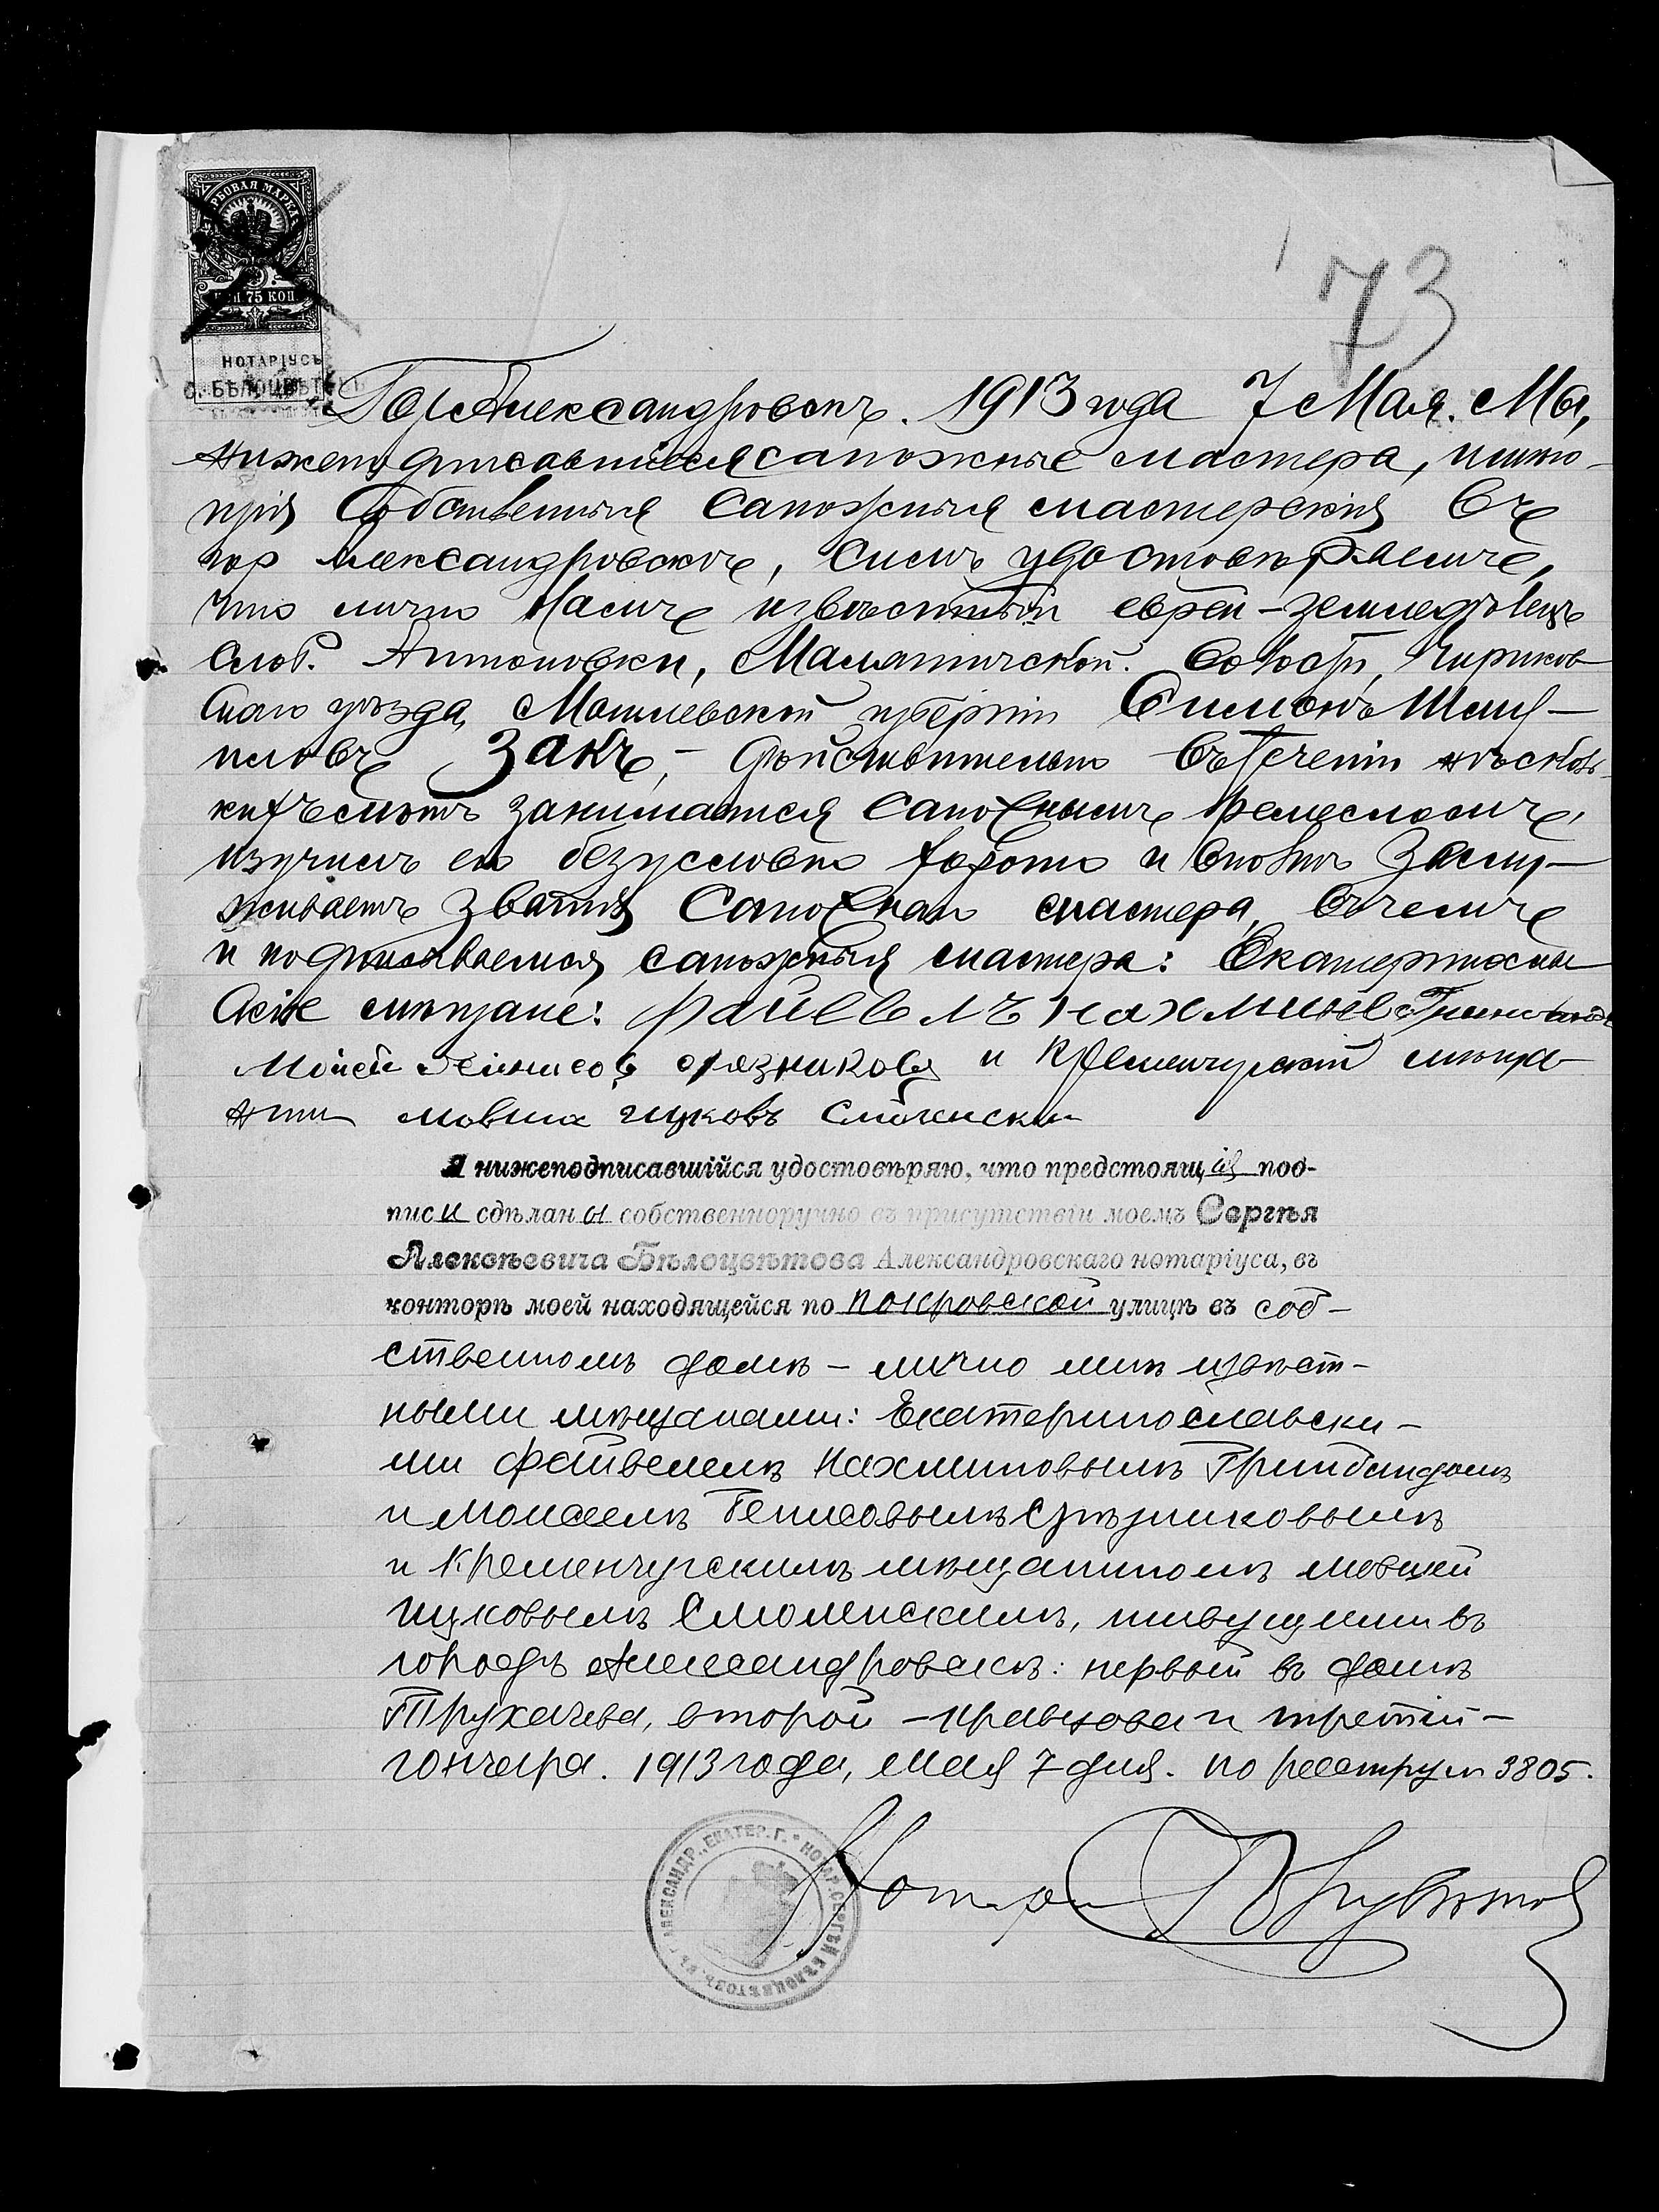 ГЕРБОВАЯ МАРКА
75 КОП.
НОТАРІУСЪ
С. БѢЛОЦВѢТОВЪ
73
Гор Александровскъ. 1913 года 7 Мая. Мы,
нижеподписавшіеся сапожные мастера, имѣю-
щія собственныя сапожныя мастерскія въ
гор Александровскѣ, симъ удостовѣряемъ,
что лично намъ извѣстный еврей-земледѣлецъ
слоб. Антоновки, волости, Чириков
скаго уѣзда, Могилевской губерніи Симонъ
Закъ, – дѣйствительно въ теченіи нѣсколь-
кихъ лѣтъ занимается сапожнымъ ремесломъ,
изучилъ его безусловно хорошо и вполнѣ заслу-
живаетъ званія сапожнаго мастера, въ чемъ
и подписываемся, сапожныя мастера: Екатеринослав
скіе мѣщане: файвелъ нахминовъ
и Кременчугскій мѣща-
нин мовша ицковъ Смоленски
Я нижеподписавшійся удостовѣряю, что предстоящія под-
писи сдѣланы собственноручно въ присутствіи моемъ Сергѣя
Алексѣевича Бѣлоцвѣтова Александровскаго нотаріуса, въ
конторѣ моей находящейся по Покровской улицѣ въ соб-
ственномъ домѣ – лично мнѣ извѣст-
ными мѣщанами: Екатеринославски-
ми Файвелемъ Нахминовымъ Гринбандомъ
и Моисеемъ Генисовымъ Срѣзниковымъ
и Кременчугскимъ мѣщаниномъ Мовшей
Ицковымъ Смоленскимъ, живущими въ
городѣ Александровскѣ: первый въ домѣ
Трухачева, второй – и третій –
Гончара. 1913 года, мая 7 дня. По реестру № 3805.
Нотаріусъ Бѣлоцвѣтовъ
АЛЕКСАНДР., ЕКАТЕР. Г. * НОТАР. СЕРГѢЙ БѢЛОЦВѢТОВЪ